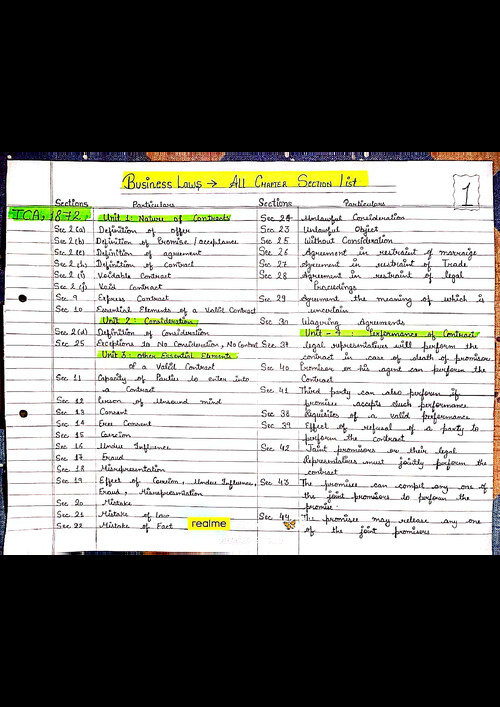 Business Laws → All Chapter Section List
1
Sections Particulars
ICA, 1872, Unit 1: Nature of Contracts
Sec 2(a) Definition of offer
Sec 2(b) Definition of Promise / acceptance
Sec 2(e) Definition of agreement
Sec 2(h) Definition of contract
Sec 2(i) Voidable Contract
Sec 2(j) Void Contract
Sec 9 Express Contract
Sec 10 Essential Elements of a Valid Contract
Unit 2: Consideration
Sec 2(d) Definition of Consideration
Sec 25 Exceptions to No Consideration, No Contract
Unit 3: other Essential Elements
of a Valid Contract
Sec 11 Capacity of Parties to enter into
a Contract
Sec 12 Person of Unsound mind
Sec 13 Consent
Sec 14 Free Consent
Sec 15 Coercion
Sec 16 Undue Influence
Sec 17 Fraud
Sec 18 Misrepresentation
Sec 19 Effect of Coercion, Undue Influence,
Fraud, Misrepresentation
Sec 20 Mistake
Sec 21 Mistake of law
Sec 22 Mistake of Fact
realme
Sections Particulars
Sec 24 Unlawful Consideration
Sec 23 Unlawful Object
Sec 25 Without Consideration
Sec 26 Agreement in restraint of marraige
Sec 27 Agreement in restraint of Trade
Sec 28 Agreement in restraint of legal
Proceedings
Sec 29 Agreement the meaning of which is
uncertain
Sec 30 Wagering Agreements
Unit - 4 : Performance of Contract
Sec 37 legal representatives will perform the
contract in case of death of promisor
Sec 40 Promisor or his agent can perform the
Contract
Sec 41 Third party can also perform if
promisee accepts such performance
Sec 38 Requisites of a valid performance
Sec 39 Effect of refusal of a party to
perform the contract
Sec 42 Joint promisors or their legal
Representatives must jointly perform the
contract
Sec 43 The promisee can compel any one of
the joint promisors to perform the
promise
Sec 44 The promisee may release any one
of the joint promisors